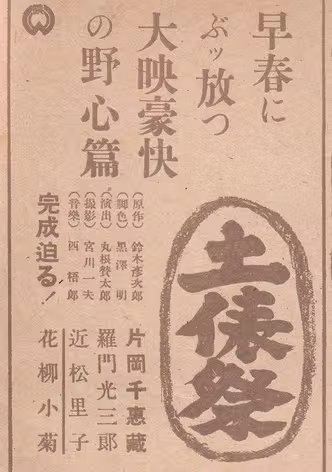 早春に
ぶッ放つ
大映豪快
の野心篇
土俵祭
(原作)鈴木彦次郎
(脚色)黒澤明
(演出)丸根賛太郎
(撮影)宮川一夫
(音樂)西梧郎
完成迫る!
片岡千恵藏
羅門光三郎
近松里子
花柳小菊